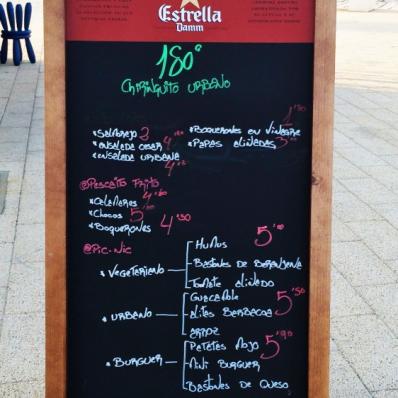 Estrella
Damm
180º
CHIRINQUITO URBANO
*SALMOREJO 3
*ENSALADA CESAR 4
*ENSALADA URBANA 4
*BOQUERONES EN VINAGRE
*PAPAS ALIÑADAS 3
@PESCAITO FRITO
*CALAMARES 4
*CHOCOS 5
*BOQUERONES 4'50
@PIC-NIC
*VEGETARIANO
HUMUS
BASTONES DE BERENJENA
TOMATE ALIÑADO
*URBANO
GUACAMOLE
ALITAS BARBACOA 5'50
ARROZ
*BURGUER
PATATAS MOJO 5'90
MINI BURGUER
BASTONES DE QUESO